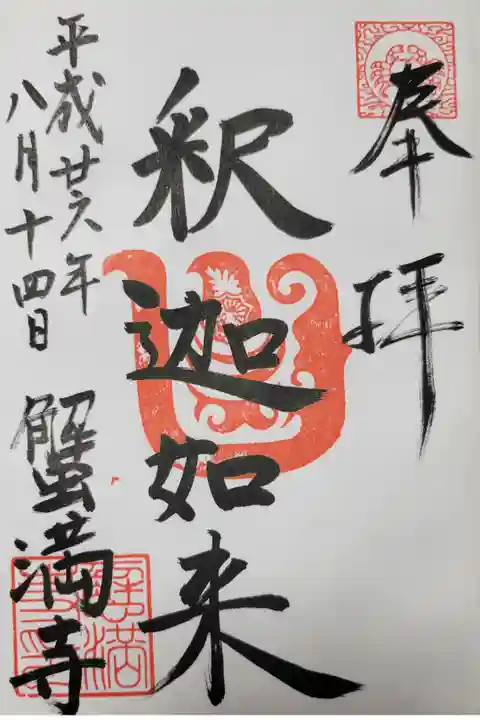 奉拝
釈迦如来
平成廿六年
八月十四日
蟹満寺